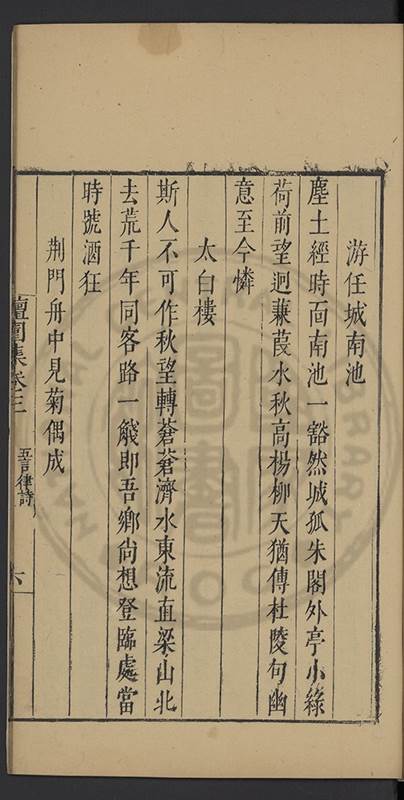 游任城南池
塵土經時面南池一豁然城孤朱閣外亭小綠
荷前望迥蒹葭水秋高楊柳天猶傳杜陵句幽
意至今憐
太白樓
斯人不可作秋望轉蒼蒼濟水東流直梁山北
去荒千年同客路一觴即吾鄉尙想登臨處當
時號酒狂
荆門舟中見菊偶成
檀園集卷三
五言律詩
六